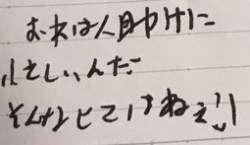 おれは人助けに
忙しいんだ
そんなとこいけねえ!!